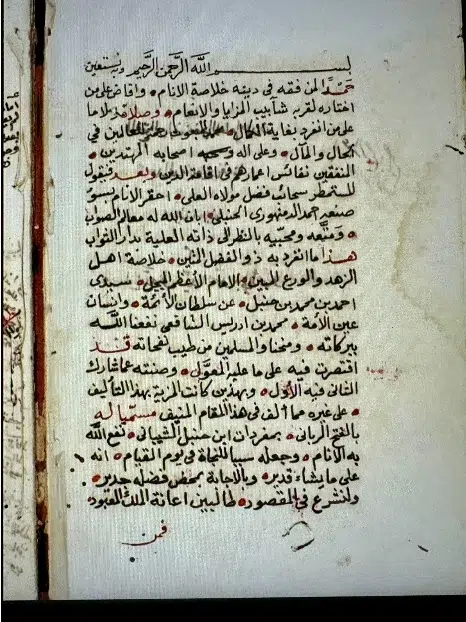 بسم الله الرحمن الرحيم وبه نستعين
حمدًا لمن فقه في دينه خلاصة الانام • وافاض على من
اختاره لقربه شآبيب المزايا والانعام • وصلاة وسلاما
على من انفرد بغاية الكمال • في
الحال والمآل • وعلى اله وصحبه اصحابه المهتدين •
المنفقين نفائس اعمارهم في اقامة الدين • وبعد فيقول
المستمطر سحائب فضل مولاه العلي • احقر الانام بسوء
صنعه احمد الدمنهوري الحنبلي • ابان الله له معالم الصواب
• ومتعه ومحبيه بالنظر الى ذاته العلية بدار الثواب
هذا ما انفرد به ذو الفضل المتين • خلاصة اهل
الزهد والورع المبين • والامام الاعظم المبجل • سيدي
احمد بن محمد بن حنبل • عن سلطان الأئمة • وانسان
عين الأمة • محمد بن ادريس الشافعي نفعنا الله
ببركاته • ومنحنا والمسلمين من طيب نفحاته • قد
اقتصرت فيه على ما عليه المعول • وصنته عما شارك
الثاني فيه الأول • وبهذين كانت المزية بهذا التأليف
• على غيره مما ألف في هذا المقام المنيف مسميا له
بالفتح الرباني • بمفردات ابن حنبل الشيباني • نفع الله
به الأنام • وجعله سببا للنجاة في يوم القيام • انه
على ما يشاء قدير • وبالاجابة بمحض فضله جدير •
ولنشرع في المقصود • طالبين اعانة الملك المعبود
فمن